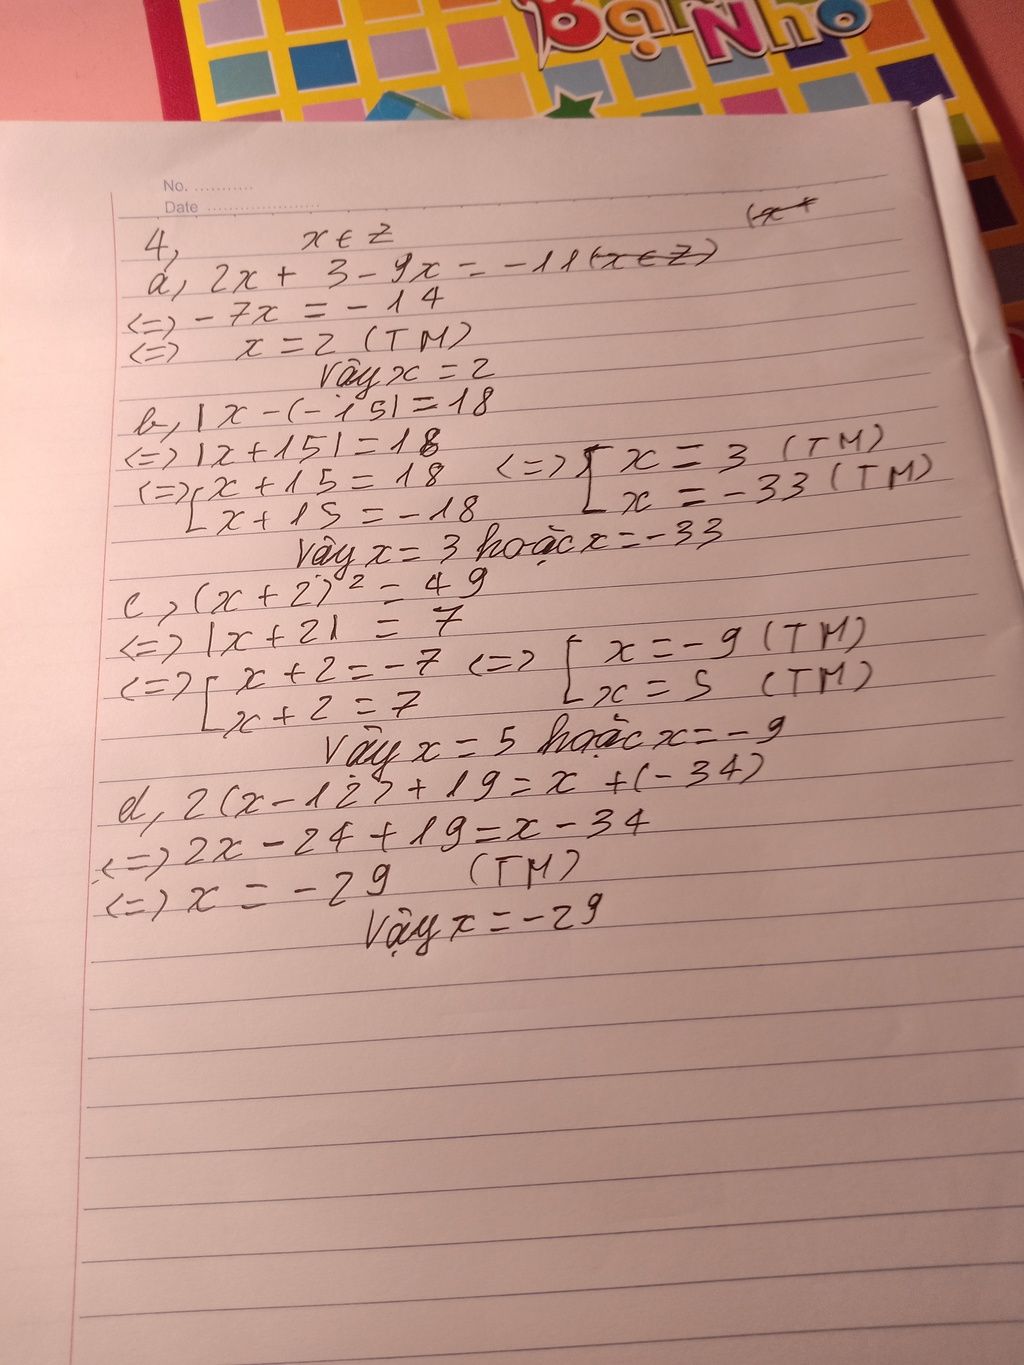 Bạn Nhỏ
No. ...........
Date ......................
(x +
4, x ∈ Z
a, 2x + 3 - 9x = -11 (x ∈ Z)
<=> - 7x = - 14
<=> x = 2 (TM)
Vậy x = 2
b, |x - (-15)| = 18
<=> |x + 15| = 18
<=> [ x + 15 = 18 <=> [ x = 3 (TM)
x + 15 = -18 x = -33 (TM)
Vậy x = 3 hoặc x = -33
c, (x + 2)² = 49
<=> |x + 2| = 7
<=> [ x + 2 = -7 <=> [ x = -9 (TM)
x + 2 = 7 x = 5 (TM)
Vậy x = 5 hoặc x = -9
d, 2(x - 12) + 19 = x + (-34)
<=> 2x - 24 + 19 = x - 34
<=> x = -29 (TM)
Vậy x = -29